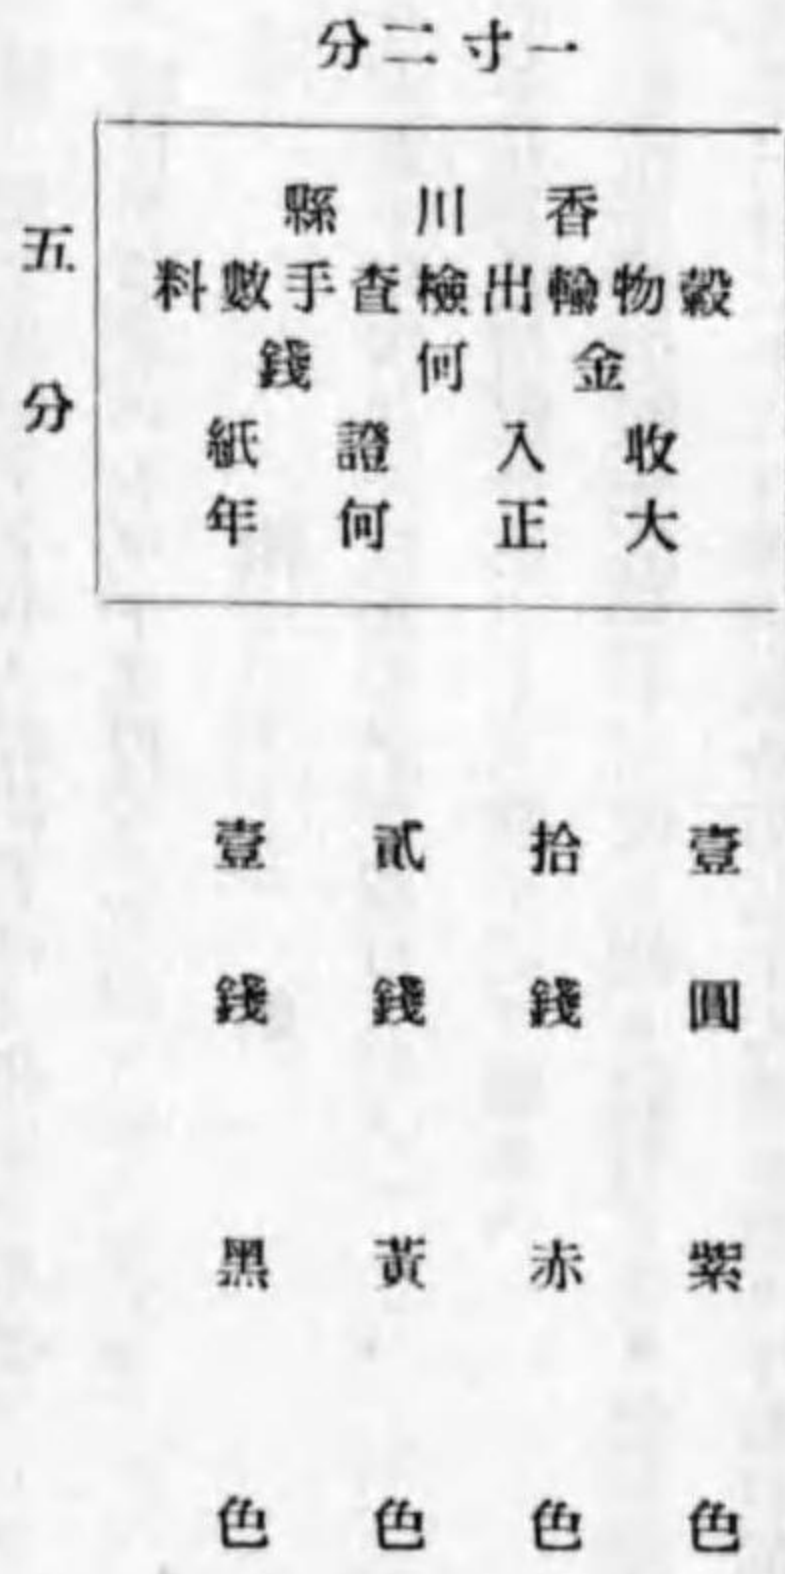 一寸二分
五分
香川縣
穀物輸出檢查手數料
金何錢
收入證紙
大正何年
壹圓 紫色
拾錢 赤色
貳錢 黃色
壹錢 黑色